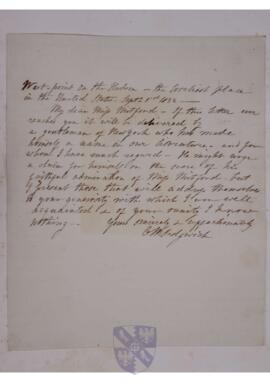 West-point on the Hudson - the loveliest place
in the United States, Sept 1st
My dear Miss Mitford - If this letter ever
reaches you it will be delivered by
a gentleman of New York who has made
himself a name in our literature - and for
whom I have much regard - He might urge
a claim for himself on the score of his
faithful admiration of Miss Mitford - but
I present those that will address themselves
to your generosity with which I am well
acquainted & of your vanity I know
nothing -
Yours sincerely & affectionately
C M Sedgwick